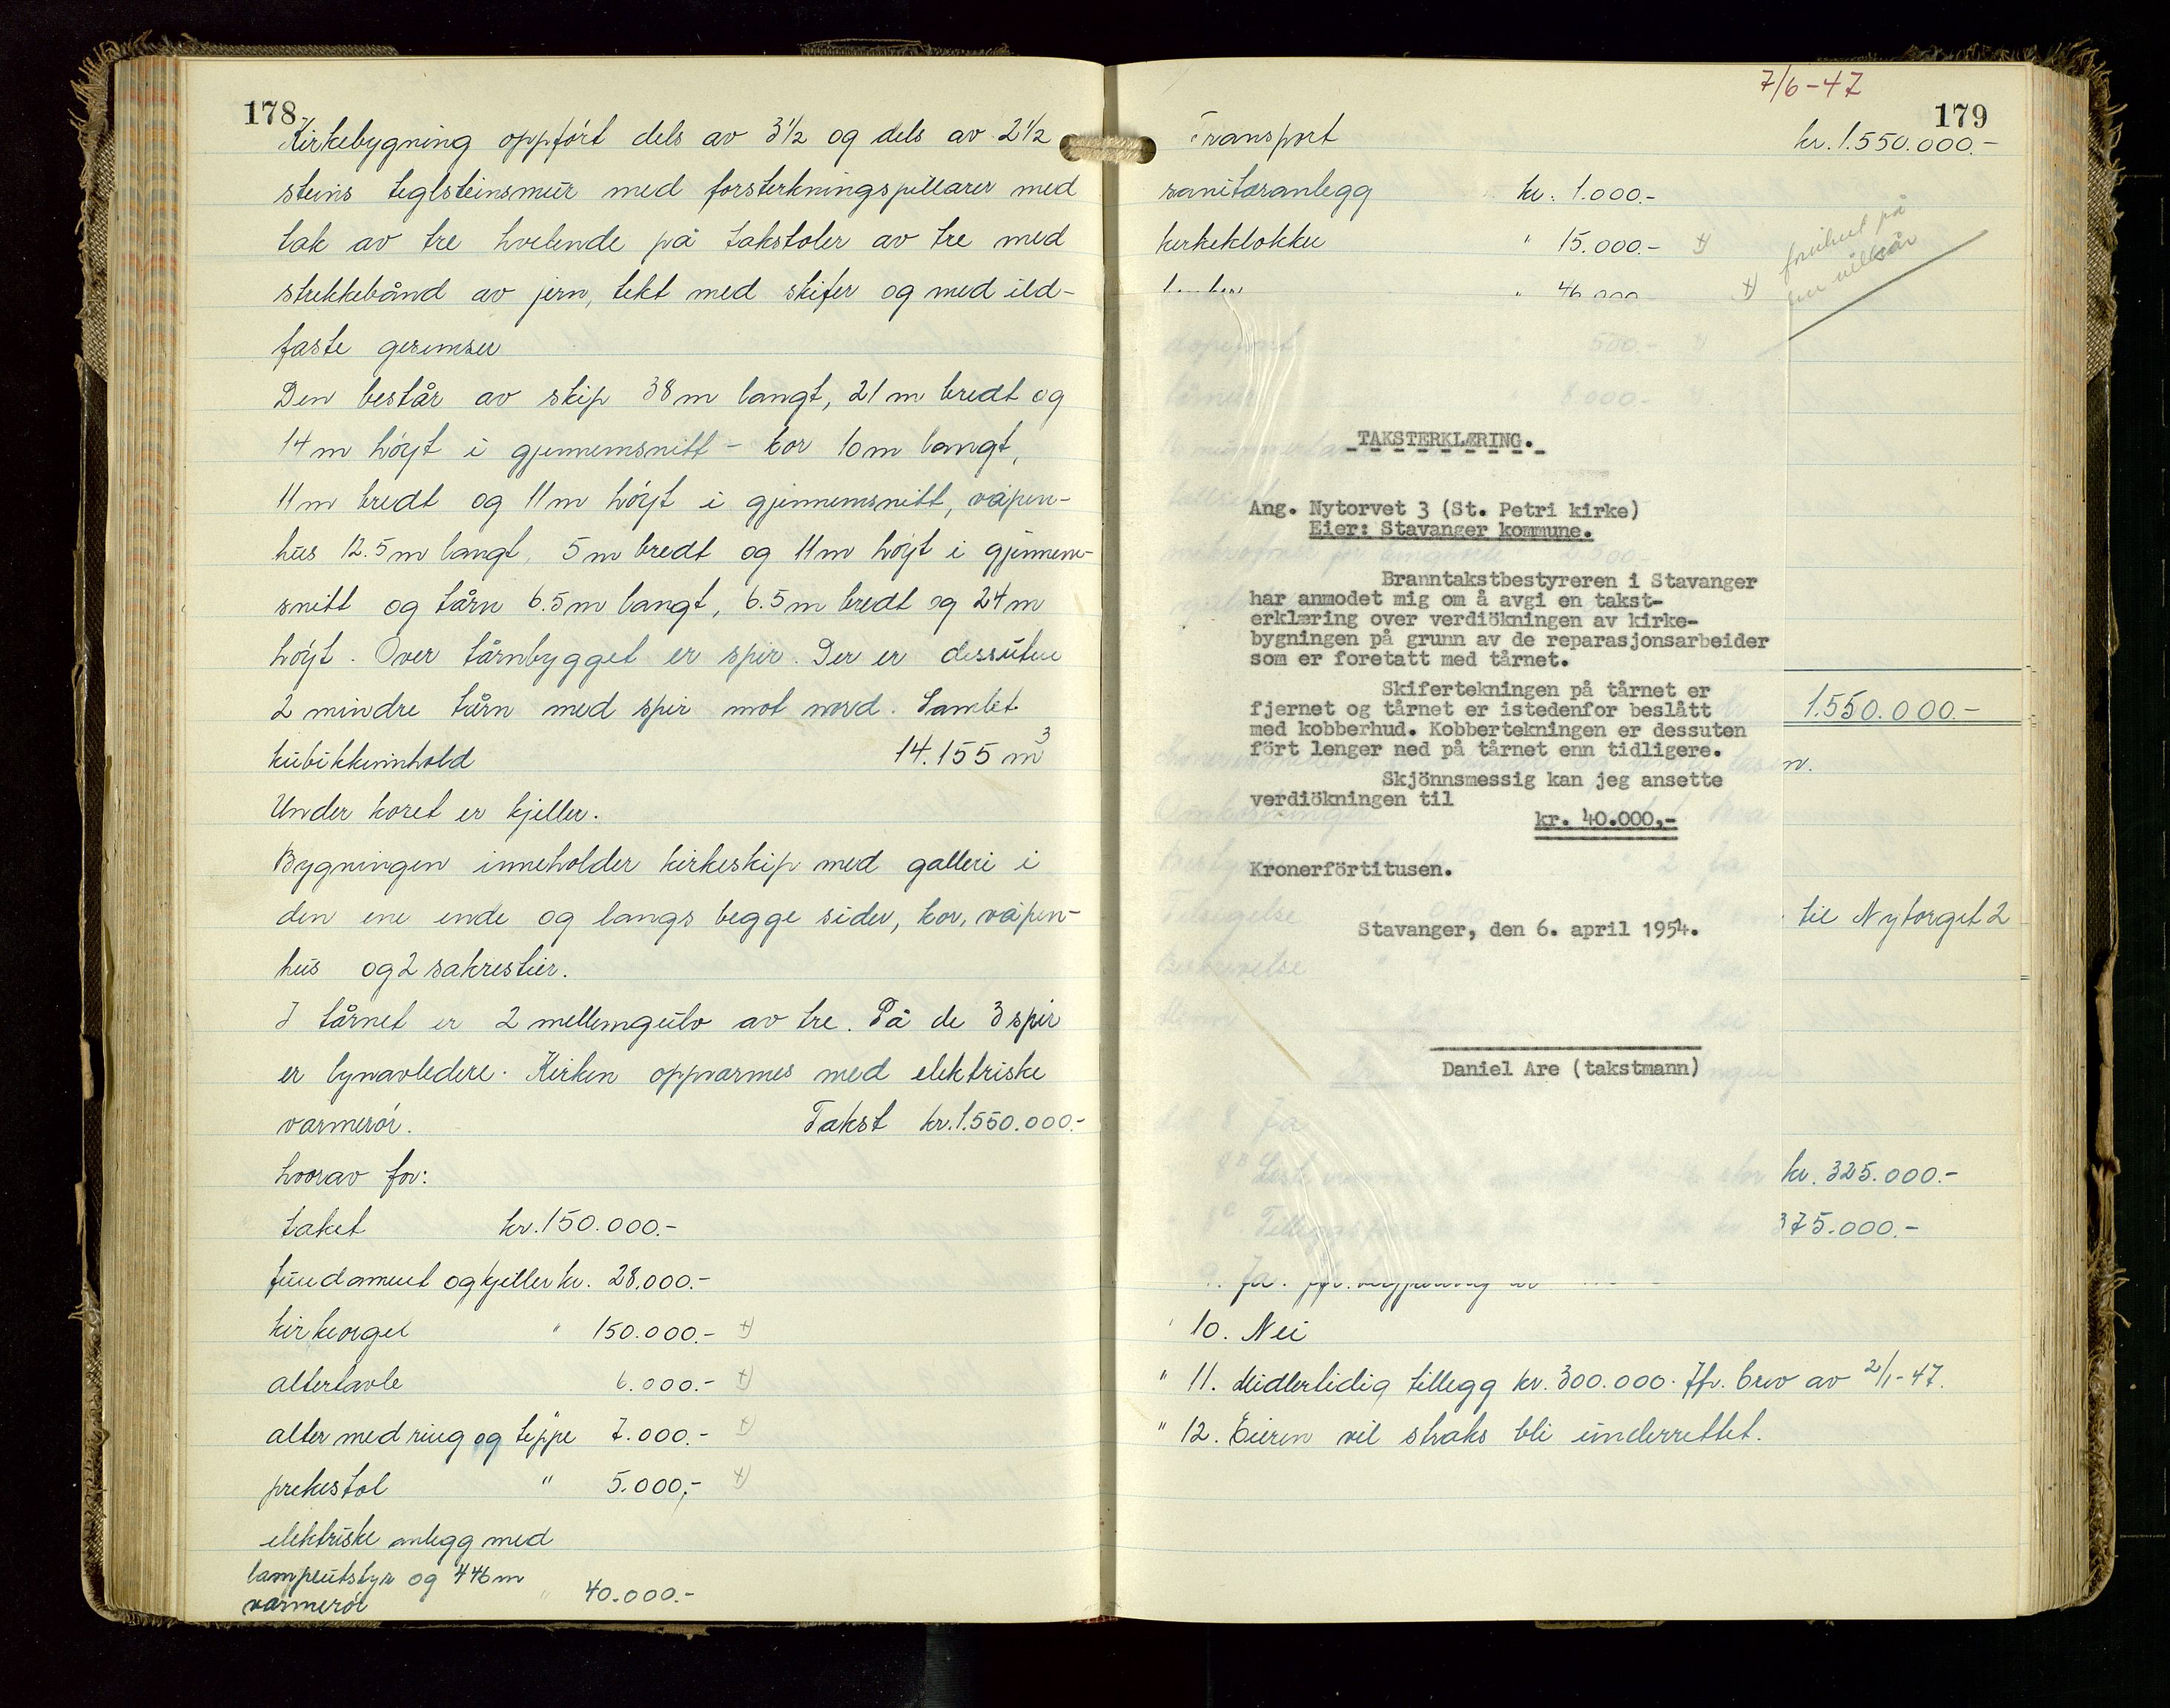 178
Kirkebygning oppført dels av 3½ og dels av 2½
steins teglsteinsmur med forsterkningspillarer med
tak av tre hvelende på takstoler av tre med
strekkebånd av jern, tekt med skifer og med ild-
faste gesimser
Den består av skip 38 m langt, 21 m bredt og
14 m høyt i gjennemsnitt - kor 10 m langt,
11 m bredt og 11 m høyt i gjennemsnitt, våpen-
hus 12.5 m langt, 5 m bredt og 11 m høyt i gjennem-
snitt og tårn 6.5 m langt, 6.5 m bredt og 24 m
høyt. Over tårnbygget er spir. Der er dessuten
2 mindre tårn med spir mot nord. Samlet
kubikkinnhold 14.155 m³
Under koret er kjeller.
Bygningen inneholder kirkeskip med galleri i
den ene ende og langs begge sider, kor, våpen-
hus og 2 sakrestier.
I tårnet er 2 mellemgulv av tre. På de 3 spir
er lynavledere. Kirken oppvarmes med elektriske
varmerør. Takst kr. 1.550.000.-
hvorav for:
taket kr. 150.000.-
fundament og kjeller kr. 28.000.-
kirkeorgel " 150.000.- +)
altertavle 6.000.- +)
alter med ring og teppe 7.000.- +)
prekestol " 5.000,- +)
elektriske anlegg med
lampeutstyr og 446 m
varmerør " 40.000.-
7/6-47
179
Transport kr. 1.550.000.-
sanitæranlegg kr. 1.000.-
kirkeklokke " 15.000.- +)
" 46.000 +)
på
TAKSTERKLÆRING.
Ang. Nytorvet 3 (St. Petri kirke)
Eier: Stavanger kommune.
Branntakstbestyreren i Stavanger
har anmodet mig om å avgi en takst-
erklæring over verdiökningen av kirke-
bygningen på grunn av de reparasjonsarbeider
som er foretatt med tårnet.
Skifertekningen på tårnet er
fjernet og tårnet er istedenfor beslått
med kobberhud. Kobbertekningen er dessuten
fört lenger ned på tårnet enn tidligere.
1.550.000.-
Skjönnsmessig kan jeg ansette
verdiökningen til
kr. 40.000,-
Kronerförtitusen.
til Nytorget 2
Stavanger, den 6. april 1954.
Daniel Are (takstmann)
kr. 325.000.-
375.000.-
" 10. Nei
" 11. Midlertidig tillegg kr. 300.000. Jfr. brev av 2/1-47.
" 12. Eieren vil straks bli underrettet.